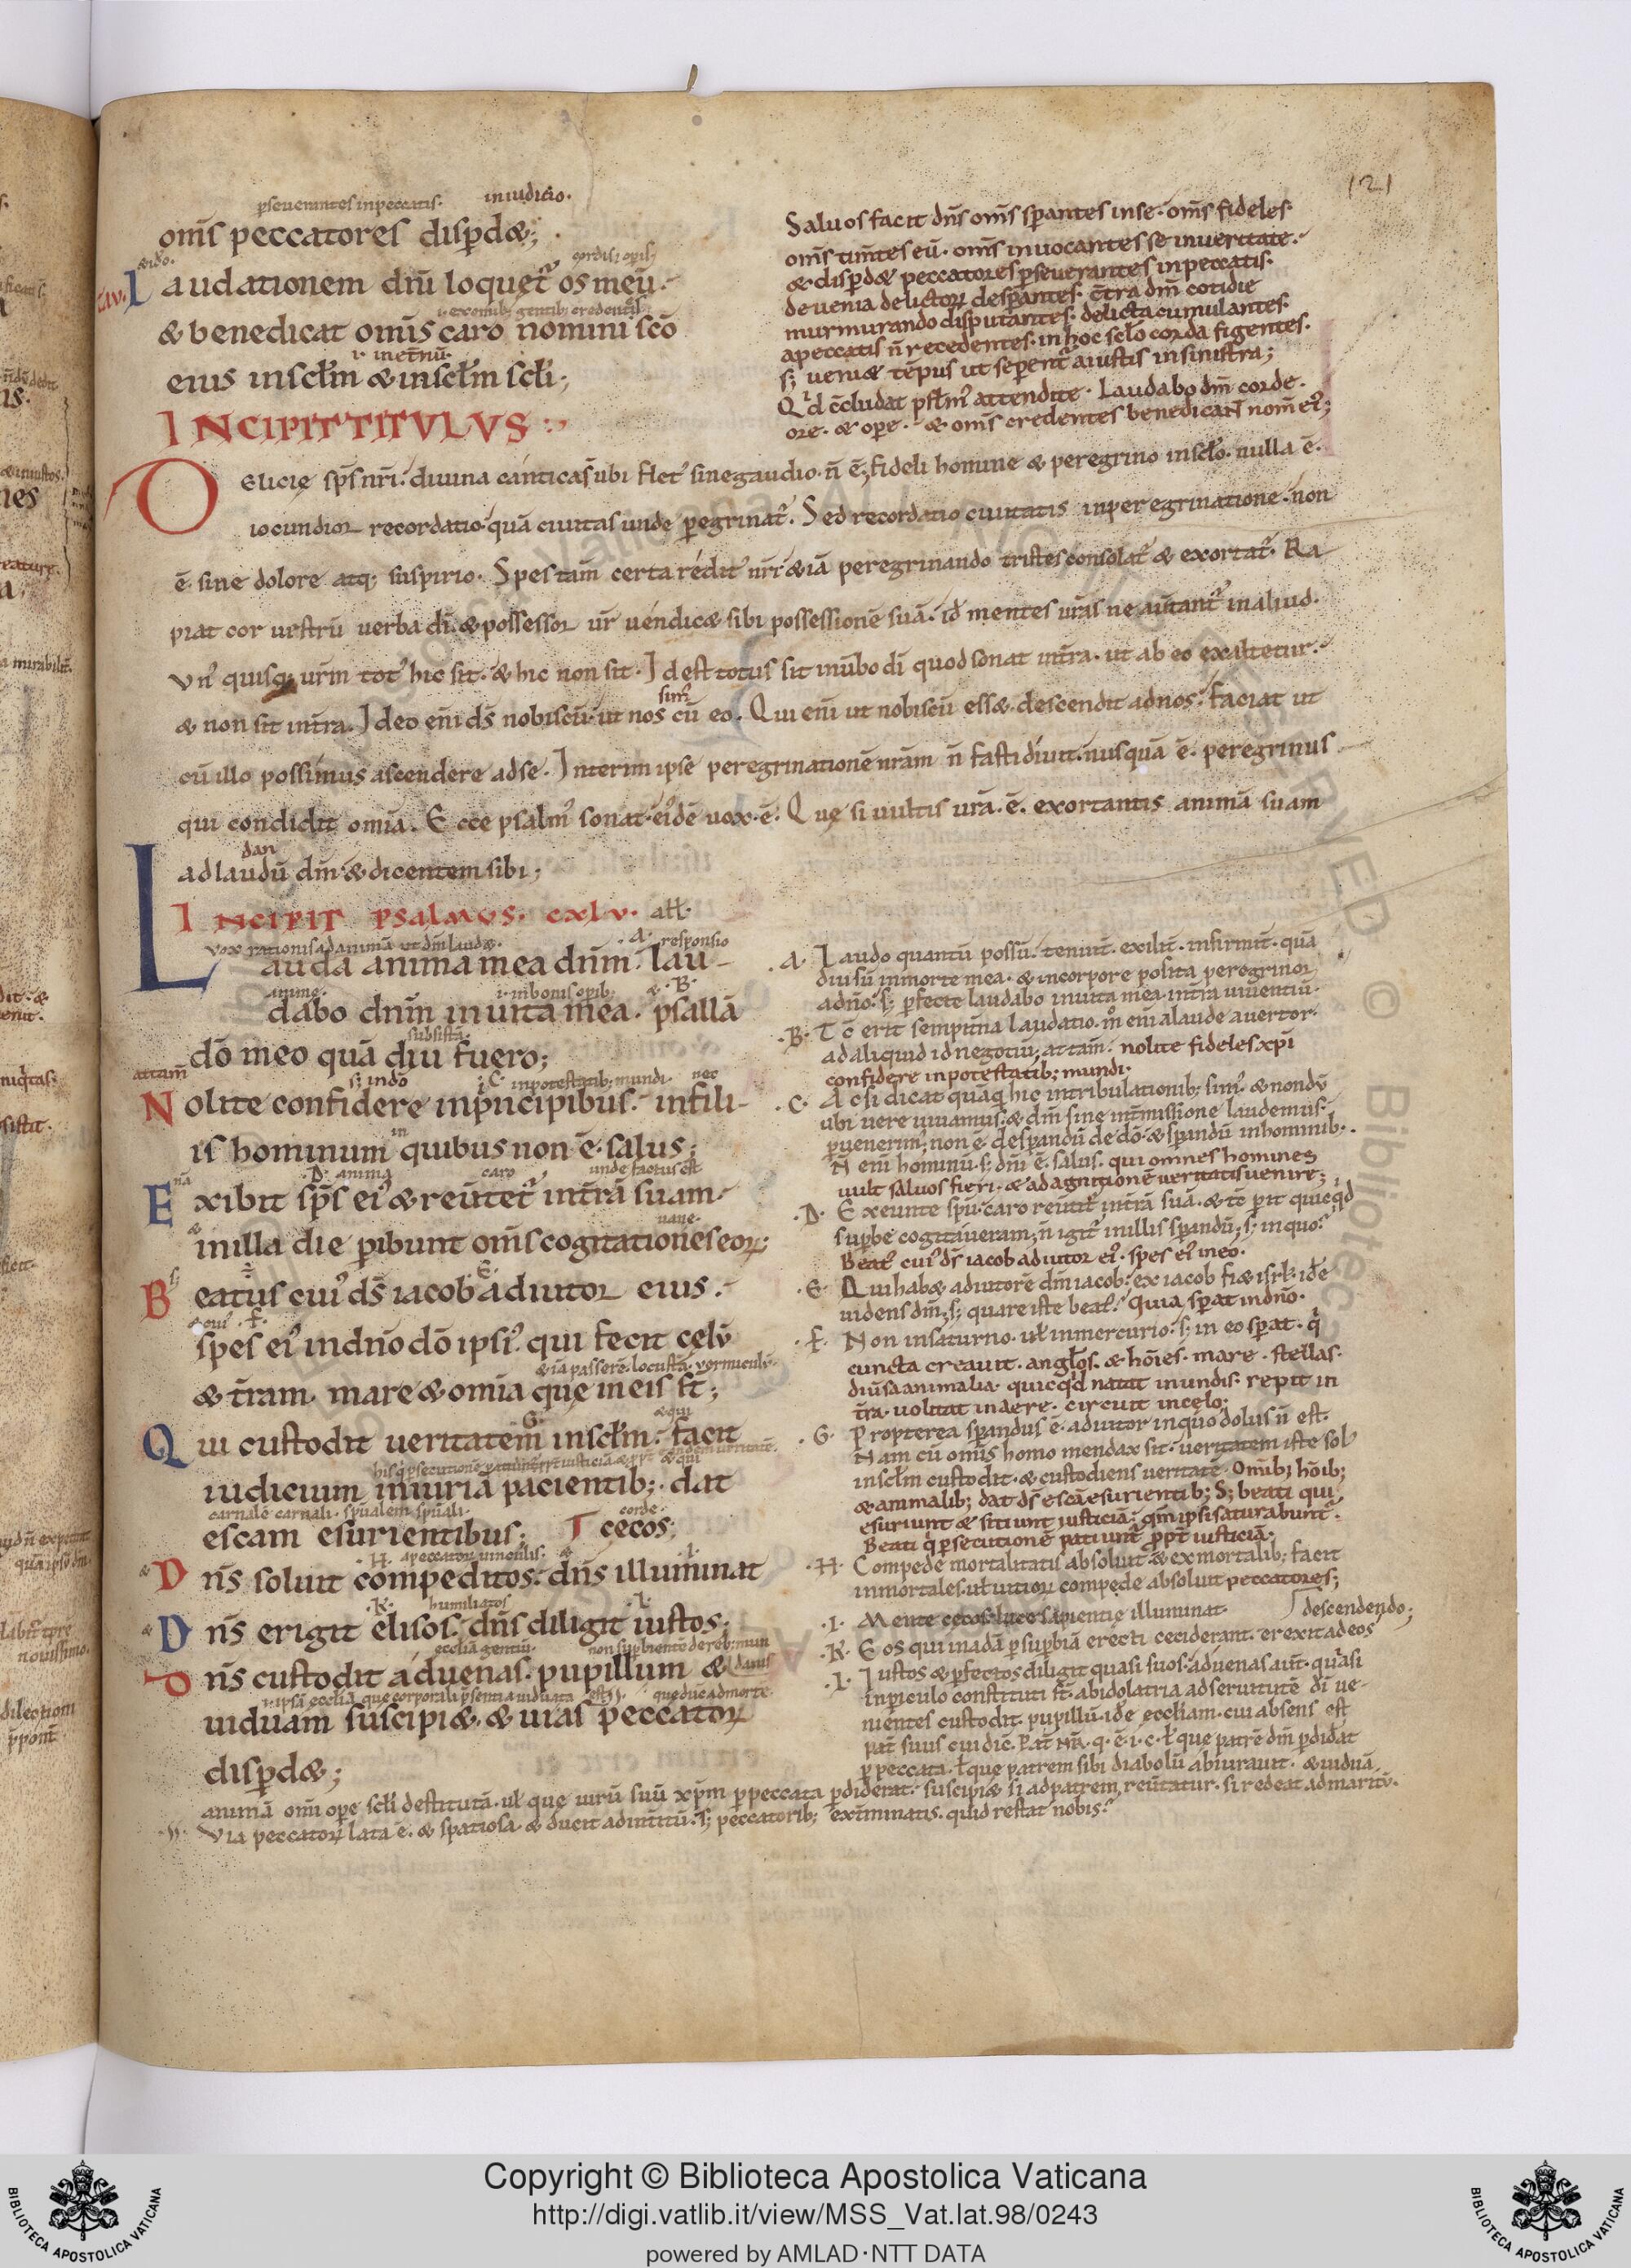 121
pseuerantes inpeccatis. iniudicio.
om̄s peccatores disp̲dæ;
Laudationem dn̄i loquet̄ os meū.
& benedicat omīs caro nomini sc̄o
eius insclm̄ & insclm̄ scl̄i;
Saluos facit dn̄s om̄s sp̲antes inse. om̄s fideles.
om̄s tim̄tes eū. om̄s inuocantes se inueritate.
& disp̲dæ peccatores p̲seuerantes inpeccatis.
deuenia delictoꝝ desp̲antes. c̄tra dm̄ cotidie
murmurando disputantes. delicta cumulantes.
apeccatis n̄ recedentes. in hoc scl̄o corda figentes.
s; ueniæ tēpus ut sep̲ent̄ aiustis insinistra;
Qd c̄cludat psl̄m' attendite. Laudabo dm̄ corde.
ore. & op̲e. & om̄s credentes benedicant nom̄ ei';
INCIPIT TITVLVS
Delicię sp̄s nr̄i. diuina cantica s̄ ubi flet' sinegaudio. n̄ ē; fideli homine & peregrino inscl̄o. nulla ē.
iocundior recordatio. quā ciuitas unde p̲egrinat̄. Sed recordatio ciuitatis inperegrinatione. non
ē sine dolore atq; suspirio. Spes tam̄ certa redit' nr̄i & iā peregrinando tristes consolat̄ & exortat̄. Ra
piat cor uestrū uerba dī. & possessor ur̄ uendicæ sibi possessionē suā. id mentes ur̄as ne auertant̄ inaliud.
Vn' quisq; ur̄m tot' hic sit. & hic non sit. Id est totus sit inūbo dī quod sonat int̄ra. ut ab eo exaltetur.
& non sit int̄ra. Ideo en̄i ds̄ nobiscū. ut nos sim' cū eo. Qui enī ut nobiscū essæ. descendit adnos. faciat ut
cū illo possimus ascendere adse. Interim ipse peregrinationē nr̄am n̄ fastidiuit. nusquā ē. peregrinus
qui condidit omīa. Ecce psalm' sonat. ei'dē uox ē. Quę si uultis ur̄a ē. exortantis animā suam
adlaudandū dm̄. & dicentem sibi;
INCIPIT PSALMVS. CXLV. all̄.
vox rationis adanimā ut dm̄ laudæ. .A. responsio
Lauda anima mea dnm̄. lau
anime. i. inbonis opib; & .B.
dabo dnm̄ inuita mea. psallā
subsistā
dō meo quā diu fuero;
attam̄ s; indō .C. inpotestatib; mundi. nec
Nolite confidere inp̲ncipibus. infili
in
is hominum quibus non ē salus;
.D. anima caro unde factus est
Exibit sp̄s ei' & reūtet̄ int̄rā suam.
& uane.
inilla die p̲ibunt om̄s cogitationes eoꝝ;
.E.
Beatus cui' ds̄ iacob adiutor eius.
spes ei' indn̄o dō ipsi'. qui fecit cęlū
& iā passerē. locustā. vermiculū.
& t̄ram mare & omīa quę ineis st̄;
.G. & qui
Qui custodit ueritatem insclm̄. facit
iudicium iniuriā pacientib;. dat
carnalē carnali. spūalem spūali. corde.
escam esurientibus; cęcos;
.H. apeccatoꝝ uinculis. & .I.
Dn̄s soluit compeditos. dn̄s illuminat
.K. humiliatos .L.
Dn̄s erigit elisos. dn̄s diligit iustos;
eccliā gentiū. non sup̲bientē dereb; mundanis
Dn̄s custodit aduenas. pupillum &
uiduam suscipiæ. & uias peccatoꝝ
disp̲dæ;
.A. Laudo quantū possū. tenuit̄. exilit̄. infirmit̄. quā
diu sū inmorte mea. & incorpore posita peregrinor
adn̄o. s; p̲fecte laudabo inuita mea. int̄ra uiuentiū.
.B. Tc̄ erit sempit̄na laudatio. m̊ enī alaude auertor.
ad aliquid id negotiū; attam̄. nolite fideles xp̄i
confidere inpotestatib; mundi.
.C. Ac si dicat quāq̄ hic intribulationib; sim'. & nondū
ubi uere uiuamus. & dm̄ sine int̄missione laudemus.
p̲uenerim'; non ē desp̲andū de dō. & sp̲andū inhominib;.
N̄ enī hominū. s; dm̄ ē salus. qui omnes homines
uult saluos fieri. & ad agnitionē ueritatis uenire;
.D. Exeunte spū. caro reūtit̄ int̄rā suā. & tc̄ p̲it quicqd
sup̲be cogitaueram; n̄ igit̄ inillis sp̲andū; s; inquo.
Beat' cui' ds̄ iacob adiutor ei'. spes ei' ineo.
.E. Qui habæ adiutorē dm̄ iacob. ex iacob fiæ isrl. idē
uidens dm̄; s; quare iste beat'. Quia sp̲at indn̄o.
.F. Non insaturno. ul̄ inmercurio. s; in eo sp̲at. q̄
cuncta creauit. angl̄os. & hōies. mare. stellas.
diūsa animalia. quicqd natat inundis. repit in
t̄ra. uolitat inaere. circuit incęlo;
.G. Propterea sp̲andus ē. adiutor inquo dolus n̄ est.
Nam cū omīs homo mendax sit. ueritatem iste sol'
insclm̄ custodit. & custodiens ueritatē. Omīb; hōib;
& animalib; dat ds̄ escā esurientib; S; beati qui
esuriunt & sitiunt iusticiā; qm̄ ipsi saturabunt̄.
Beati q̄ p̲secutionē patiunt̄ ppt̄ iusticiā.
.H. Compede mortalitatis absoluit & ex mortalib; facit
inmortales. ul̄ uitioꝝ compede absoluit peccatores;
.I. Mente cęcos. luce sapientię illuminat. descendendo;
.K. Eos qui inadā p̲sup̲biā erecti ceciderant. erexit adeos
.L. Iustos & p̲fectos diligit quasi suos. aduenas aut̄. quasi
inp̲iculo constituti st̄. abidolatria ad seruitutē dī ue
nientes custodit. pupillū. idē eccliam. cui absens est
pat̄ suus cui dic̄. Pat̄ nr̄. q. ē. i. c. ł que patrē dm̄ p̲didat
p̲ peccata. ł que patrem sibi diabolū abiurauit. & uiduā
animā omī ope scl̄i destitutā. ul̄ que uirū suū xp̄m p̲peccata p̲diderat. suscipiæ si adpatrem reūtatur. si redeat admaritū.
Via peccatoꝝ lata ē. & spatiosa. & ducit adint̄itū. s; peccatorib; ext̄minatis. quid restat nobis.
Copyright © Biblioteca Apostolica Vaticana
http://digi.vatlib.it/view/MSS_Vat.lat.98/0243
powered by AMLAD·NTT DATA
BIBLIOTECA APOSTOLICA VATICANA
BIBLIOTECA APOSTOLICA VATICANA